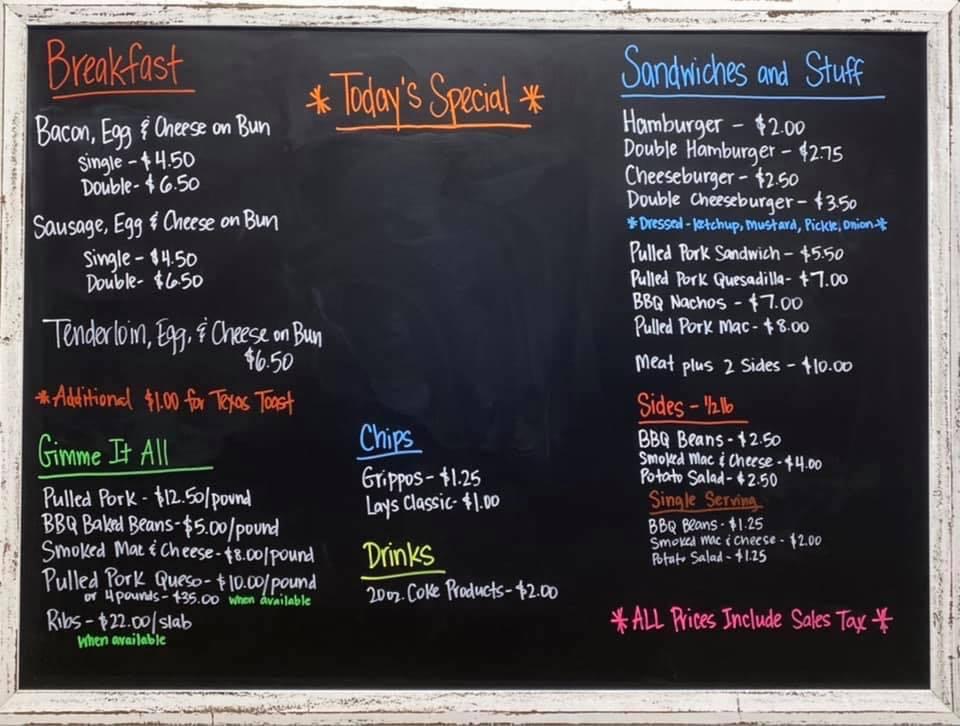 Breakfast
Bacon, Egg & Cheese on Bun
Single - $4.50
Double - $6.50
Sausage, Egg & Cheese on Bun
Single - $4.50
Double - $6.50
Tenderloin, Egg, & Cheese on Bun
$6.50
*Additional $1.00 for Texas Toast
Gimme It All
Pulled Pork - $12.50/pound
BBQ Baked Beans - $5.00/pound
Smoked Mac & Cheese - $8.00/pound
Pulled Pork Queso - $10.00/pound
or 4 pounds - $35.00 when available
Ribs - $22.00/slab
when available
*Today's Special*
Chips
Grippos - $1.25
Lays Classic - $1.00
Drinks
20oz. Coke Products - $2.00
Sandwiches and Stuff
Hamburger - $2.00
Double Hamburger - $2.75
Cheeseburger - $2.50
Double Cheeseburger - $3.50
*Dressed - Ketchup, Mustard, Pickle, Onion*
Pulled Pork Sandwich - $5.50
Pulled Pork Quesadilla - $7.00
BBQ Nachos - $7.00
Pulled Pork Mac - $8.00
Meat plus 2 Sides - $10.00
Sides - 1/2 lb
BBQ Beans - $2.50
Smoked Mac & Cheese - $4.00
Potato Salad - $2.50
Single Serving
BBQ Beans - $1.25
Smoked Mac & Cheese - $2.00
Potato Salad - $1.25
*ALL Prices Include Sales Tax*